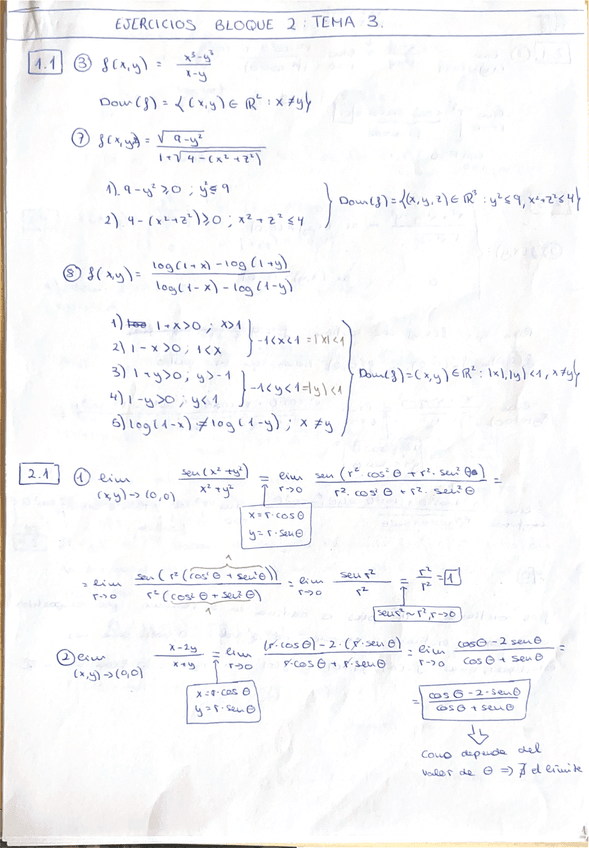 EJERCICIOS BLOQUE 2: TEMA 3.
1.1 ③ f(x,y) = (x³-y³)/(x-y)
Dom(f) = {(x,y) ∈ ℝ² : x ≠ y}
⑦ f(x,y,z) = √(9-y²) / (1+√(4-(x²+z²)))
1) 9-y² ≥ 0 ; y² ≤ 9
2) 4-(x²+z²) ≥ 0 ; x²+z² ≤ 4 } Dom(f) = {(x,y,z) ∈ ℝ³ : y² ≤ 9, x²+z² ≤ 4}
⑧ f(x,y) = (log(1+x) - log(1+y)) / (log(1-x) - log(1-y))
1) 1+x>0 ; x>1
2) 1-x>0 ; 1<x } -1<x<1 = |x|<1
3) 1+y>0 ; y>-1
4) 1-y>0 ; y<1 } -1<y<1 = |y|<1
5) log(1-x) ≠ log(1-y) ; x ≠ y } Dom(f) = (x,y) ∈ ℝ² : |x|,|y|<1, x≠y}
2.1 ① lim (x,y)→(0,0) sen(x²+y²)/(x²+y²) = lim r→0 sen(r²·cos²θ + r²·sen²θ)/(r²·cos²θ + r²·sen²θ) =
x=r·cosθ
y=r·senθ
= lim r→0 sen(r²(cos²θ + sen²θ))/(r²(cos²θ + sen²θ)) = lim r→0 sen r²/r² = r²/r² = 1
1
1
sen r² ~ r², r→0
② lim (x,y)→(0,0) (x-2y)/(x+y) = lim r→0 ((r·cosθ) - 2·(r·senθ))/(r·cosθ + r·senθ) = lim r→0 (cosθ - 2senθ)/(cosθ + senθ) =
x=r·cosθ
y=r·senθ
= (cosθ - 2·senθ)/(cosθ + senθ)
Como depende del
valor de θ => ∄ el límite
1